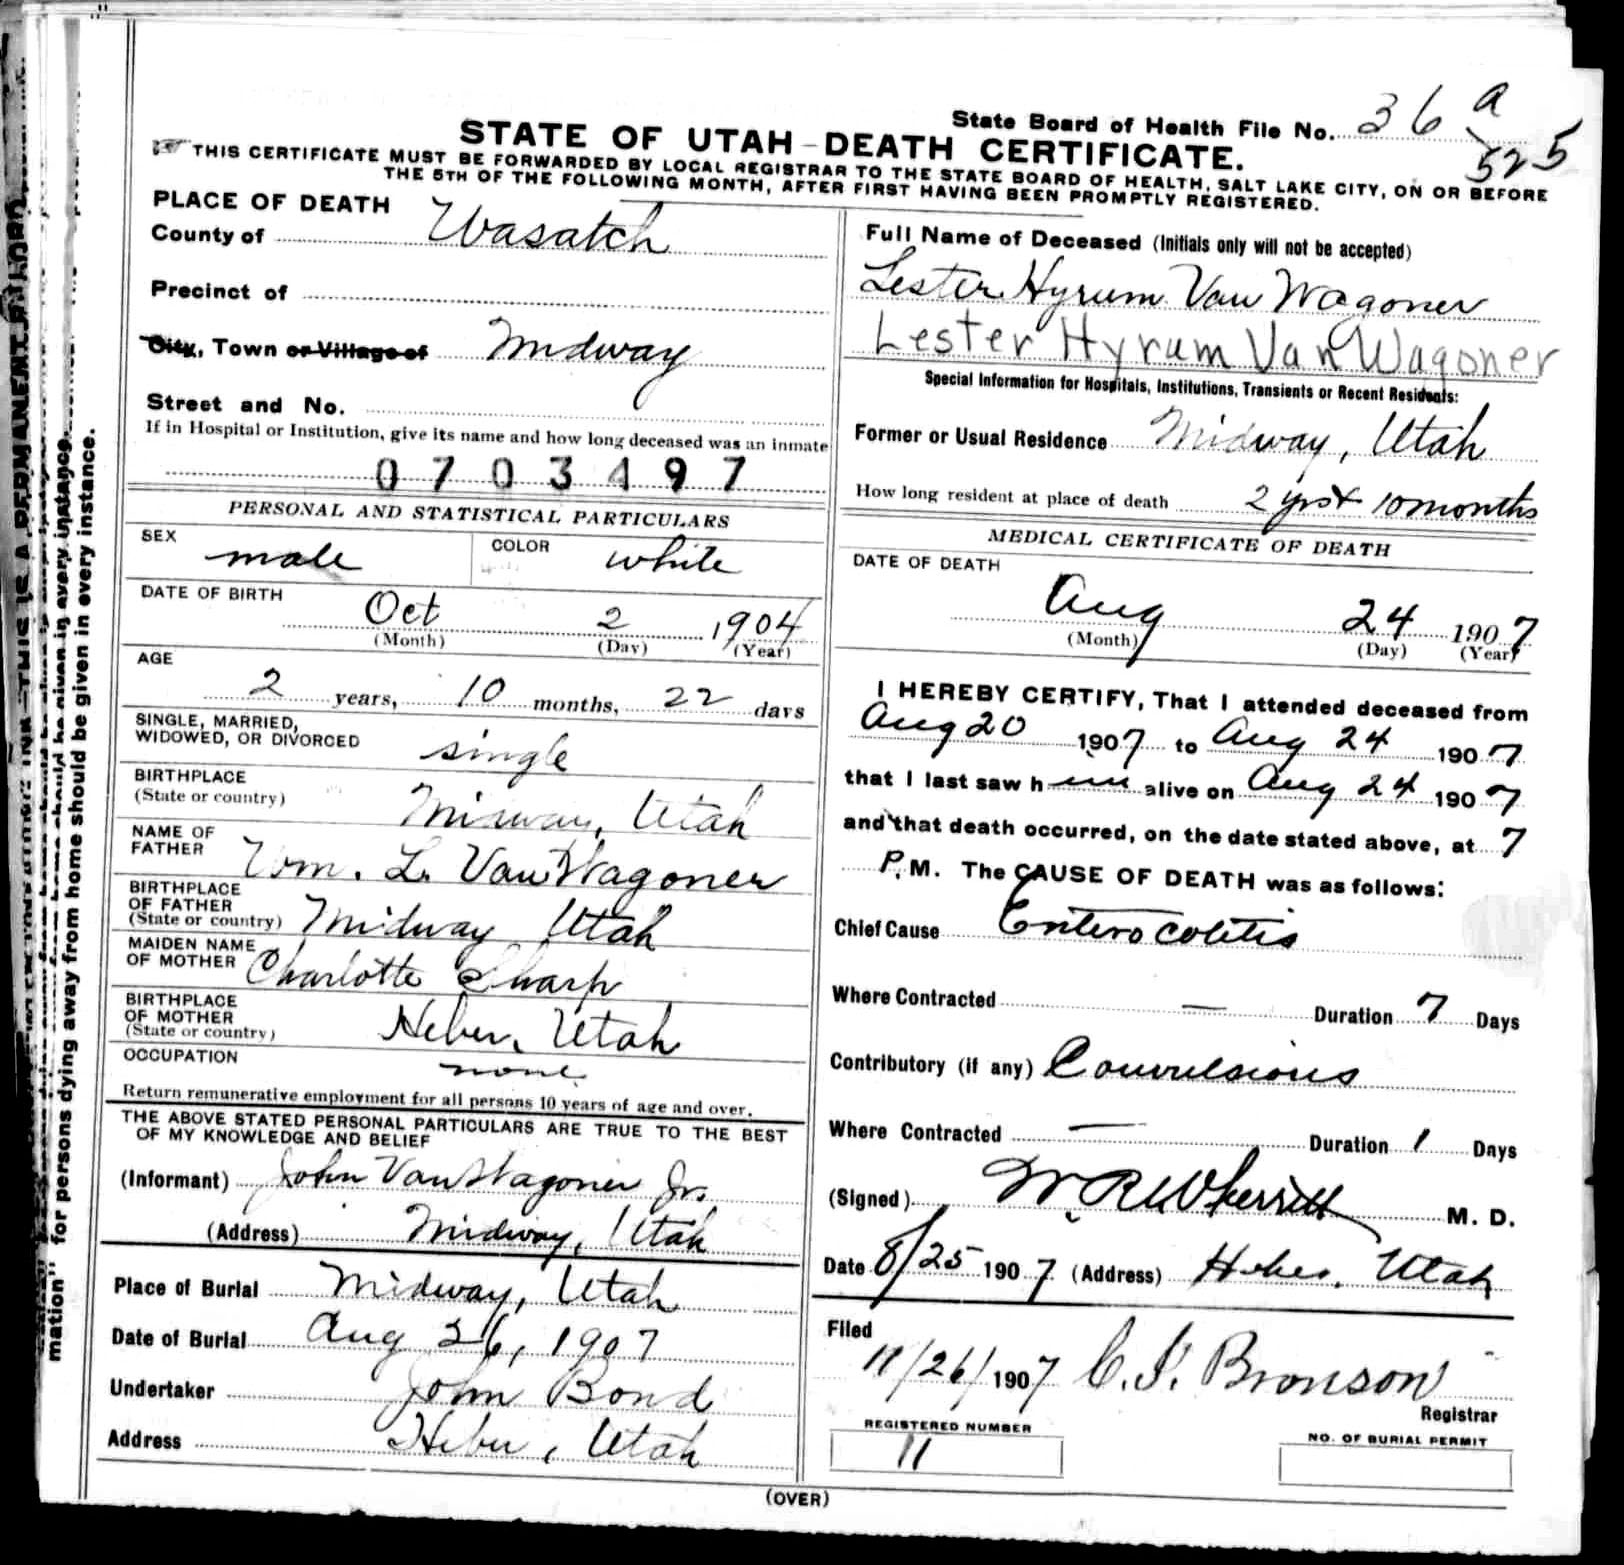 State Board of Health File No. 36 a
525
STATE OF UTAH—DEATH CERTIFICATE.
THIS CERTIFICATE MUST BE FORWARDED BY LOCAL REGISTRAR TO THE STATE BOARD OF HEALTH, SALT LAKE CITY, ON OR BEFORE
THE 5TH OF THE FOLLOWING MONTH, AFTER FIRST HAVING BEEN PROMPTLY REGISTERED.
PLACE OF DEATH
County of Wasatch
Precinct of
City, Town or Village of Midway
Street and No.
If in Hospital or Institution, give its name and how long deceased was an inmate
0703497
PERSONAL AND STATISTICAL PARTICULARS
SEX male COLOR white
DATE OF BIRTH
Oct 2 1904
(Month) (Day) (Year)
AGE
2 years, 10 months, 22 days
SINGLE, MARRIED,
WIDOWED, OR DIVORCED single
BIRTHPLACE
(State or country) Midway, Utah
NAME OF
FATHER Wm. L. Van Wagoner
BIRTHPLACE
OF FATHER
(State or country) Midway Utah
MAIDEN NAME
OF MOTHER Charlotte Sharp
BIRTHPLACE
OF MOTHER
(State or country) Heber, Utah
OCCUPATION none
Return remunerative employment for all persons 10 years of age and over.
THE ABOVE STATED PERSONAL PARTICULARS ARE TRUE TO THE BEST
OF MY KNOWLEDGE AND BELIEF
(Informant) John Van Wagoner Jr.
(Address) Midway, Utah
Place of Burial Midway, Utah
Date of Burial Aug 26, 1907
Undertaker John Bond
Address Heber, Utah
Full Name of Deceased (Initials only will not be accepted)
Lester Hyrum Van Wagoner
Lester Hyrum Van Wagoner
Special Information for Hospitals, Institutions, Transients or Recent Residents:
Former or Usual Residence Midway, Utah
How long resident at place of death 2 yrs + 10 months
MEDICAL CERTIFICATE OF DEATH
DATE OF DEATH
Aug 24 1907
(Month) (Day) (Year)
I HEREBY CERTIFY, That I attended deceased from
Aug 20 1907 to Aug 24 1907
that I last saw him alive on Aug 24 1907
and that death occurred, on the date stated above, at 7
P.M. The CAUSE OF DEATH was as follows:
Chief Cause Entero colitis
Where Contracted — Duration 7 Days
Contributory (if any) Convulsions
Where Contracted — Duration 1 Days
(Signed) W. R. Wherritt M. D.
Date 8/25 1907 (Address) Heber, Utah
Filed
11/26/1907 C. I. Bronson
Registrar
REGISTERED NUMBER
11
NO. OF BURIAL PERMIT
(OVER)
mation" for persons dying away from home should be given in every instance.